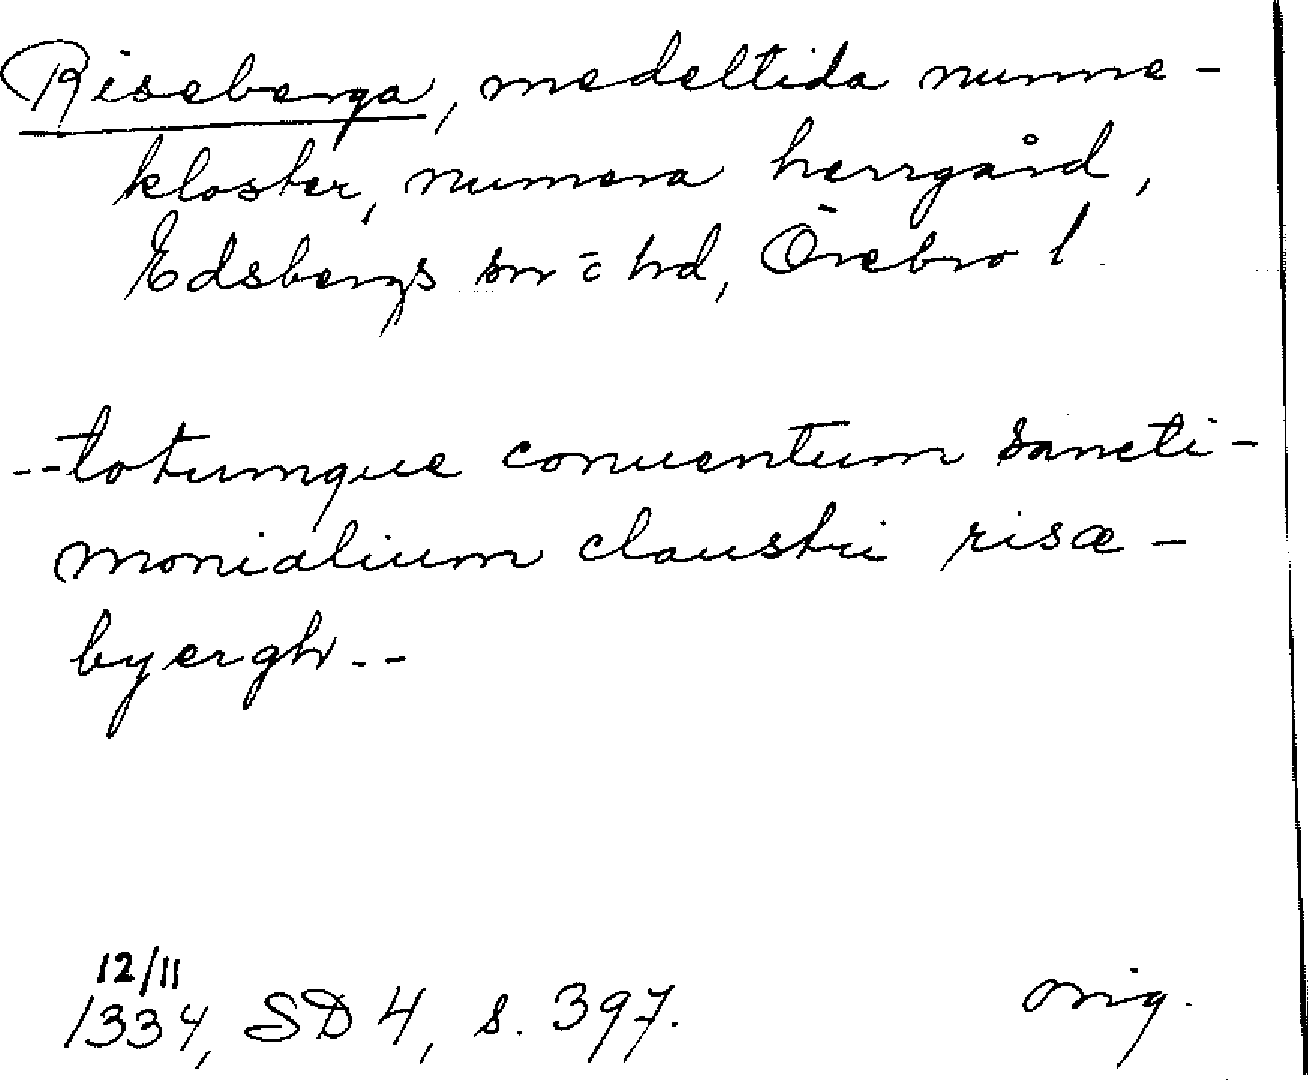 Riseberga, medeltida nunne-
kloster, numera herrgård,
Edsbergs sn o hd, Örebro l.
--totumque conuentum sancti-
monialium claustri risæ-
byergh--
12/11
1334, SD 4, s. 397.
orig.